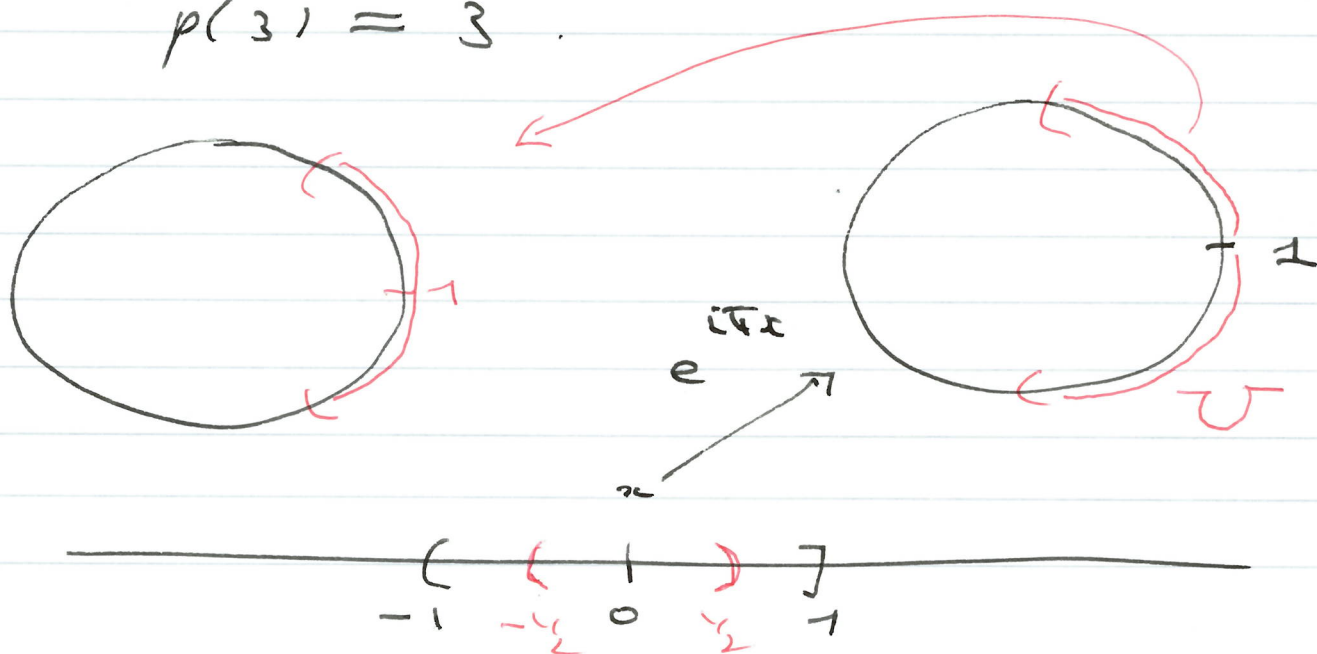 p(3) = 3 .
1
1
e^{iπx}
U
x
( ( | ) ]
-1 -1/2 0 1/2 1